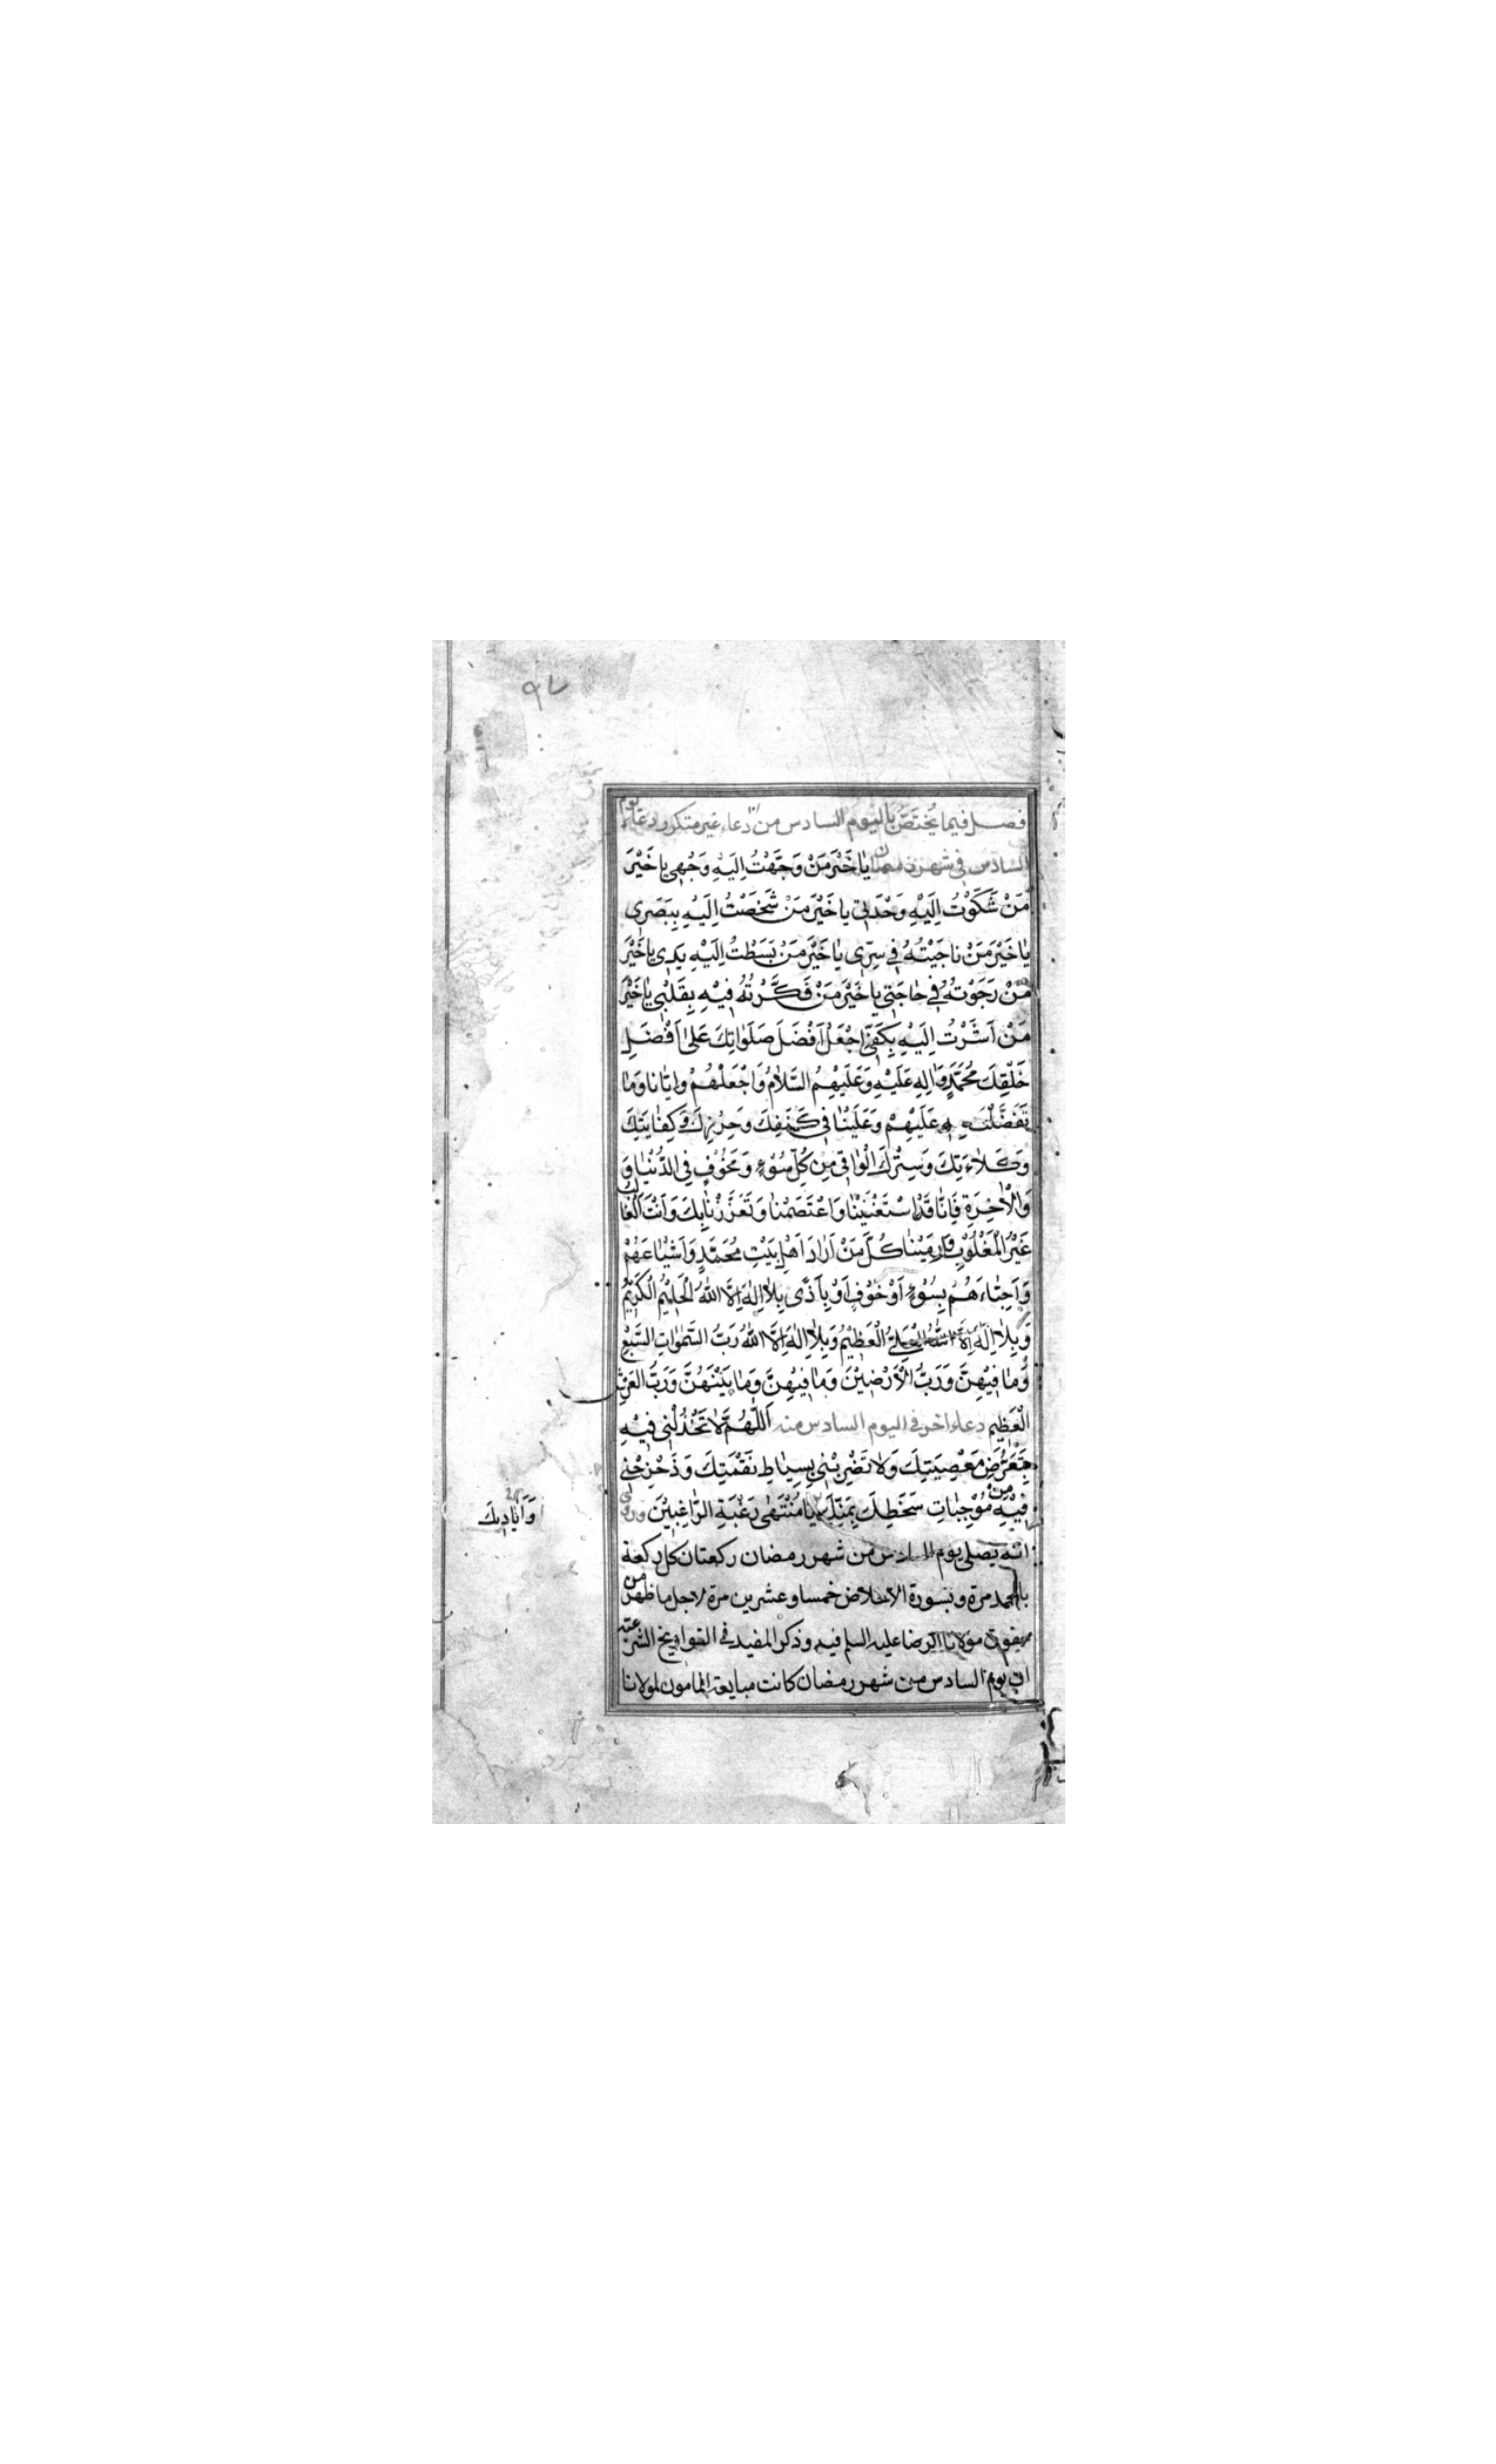 ٩٧
فصل فيما يختصّ باليوم السادس من دعاء غير متكرر دعاء يوم
السادس في شهر رمضان يا خَيْرَ مَنْ وَجَّهْتُ اِلَيْهِ وَجْهِي يا خَيْرَ
مَنْ شَكَوْتُ اِلَيْهِ وَحْدَتي يا خَيْرَ مَنْ شَخَصْتُ اِلَيْهِ بِبَصَرِي
يا خَيْرَ مَنْ ناجَيْتُهُ فِي سِرِّي يا خَيْرَ مَنْ بَسَطْتُ اِلَيْهِ يَدي يا خَيْرَ
مَنْ رَجَوْتُهُ فِي حاجَتي يا خَيْرَ مَنْ فَكَّرْتُهُ فِيْهِ بِقَلْبي يا خَيْرَ
مَنْ اَشَرْتُ اِلَيْهِ بِكَفّي اِجْعَلْ اَفْضَلَ صَلَواتِكَ عَلى اَفْضَلِ
خَلْقِكَ مُحَمَّدٍ وَالِهِ عَلَيْهِ وَعَلَيْهِمُ السَّلامُ وَاجْعَلْهُمْ وايّانا وَما
تَفَضَّلْتَ بِهِ عَلَيْهِمْ وَعَلَيْنا في كَنَفِكَ وَحِرْزِكَ وَكِفايَتِكَ
وَكَلاءَتِكَ وَسِتْرِكَ الْواقي مِنْ كُلِّ سُوْءٍ وَمَخُوْفٍ فِي الدُّنْيا وَ
وَالْاخِرَةِ فَاِنّا قَدِ اسْتَغْنَيْنا وَاعْتَصَمْنا وَتَعَزَّزْنا بِكَ وَاَنْتَ الْغالِبُ
غَيْرُ الْمَغْلُوْبِ وَرَمَيْنا كُلَّ مَنْ اَرادَ اَهْلِ بَيْتِ مُحَمَّدٍ وَاَشْياعَهُمْ
وَاَحِبّاءَهُمْ بِسُوْءٍ اَوْ خَوْفٍ اَوْ بِاَذًى بِلا اِلهَ اِلَّا اللهُ الْحَلِيْمُ الْكَرِيْمُ
وَبِلا اِلهَ اِلَّا اللهُ الْعَلِيُّ الْعَظِيْمُ وَبِلا اِلهَ اِلَّا اللهُ رَبُّ السَّمواتِ السَّبْعِ
وَما فِيْهِنَّ وَرَبُّ الْاَرَضِيْنَ وَما فِيْهِنَّ وَما بَيْنَهُنَّ وَرَبُّ العَرْشِ
الْعَظِيْمِ دعاء اخر في اليوم السادس منه اَللّهُمَّ لا تَخْذُلْنِي فِيْهِ
بِتَعَرُّضِ مَعْصِيَتِكَ وَلا تَضْرِبْنِي بِسِياطِ نَقْمَتِكَ وَزَحْزِحْنِي
فِيْهِ مِنْ مُوْجِباتِ سَخَطِكَ بِمَنِّكَ يا مُنْتَهى رَغْبَةِ الرّاغِبِيْنَ وروى
وَاَيادِيكَ
انه يصلى يوم السادس من شهر رمضان ركعتان كل ركعة
بالحمد مرة وبسورة الاخلاص خمسا وعشرين مرة لاجل ما ظهر من
حقوق مولانا الرضا عليه السلم فيه وذكر المفيد في التواريخ الشرعية
ان يوم السادس من شهر رمضان كانت مبايعة المامون لمولانا